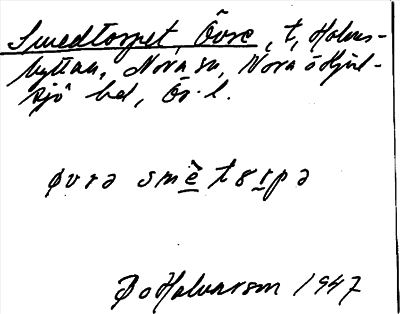 Smedtorpet, Övre, t, Holms-
hyttan, Nora sn, Nora o Hjul-
sjö bd, Ör. l.
øvrə smètorpə
Bo Halvarson 1947